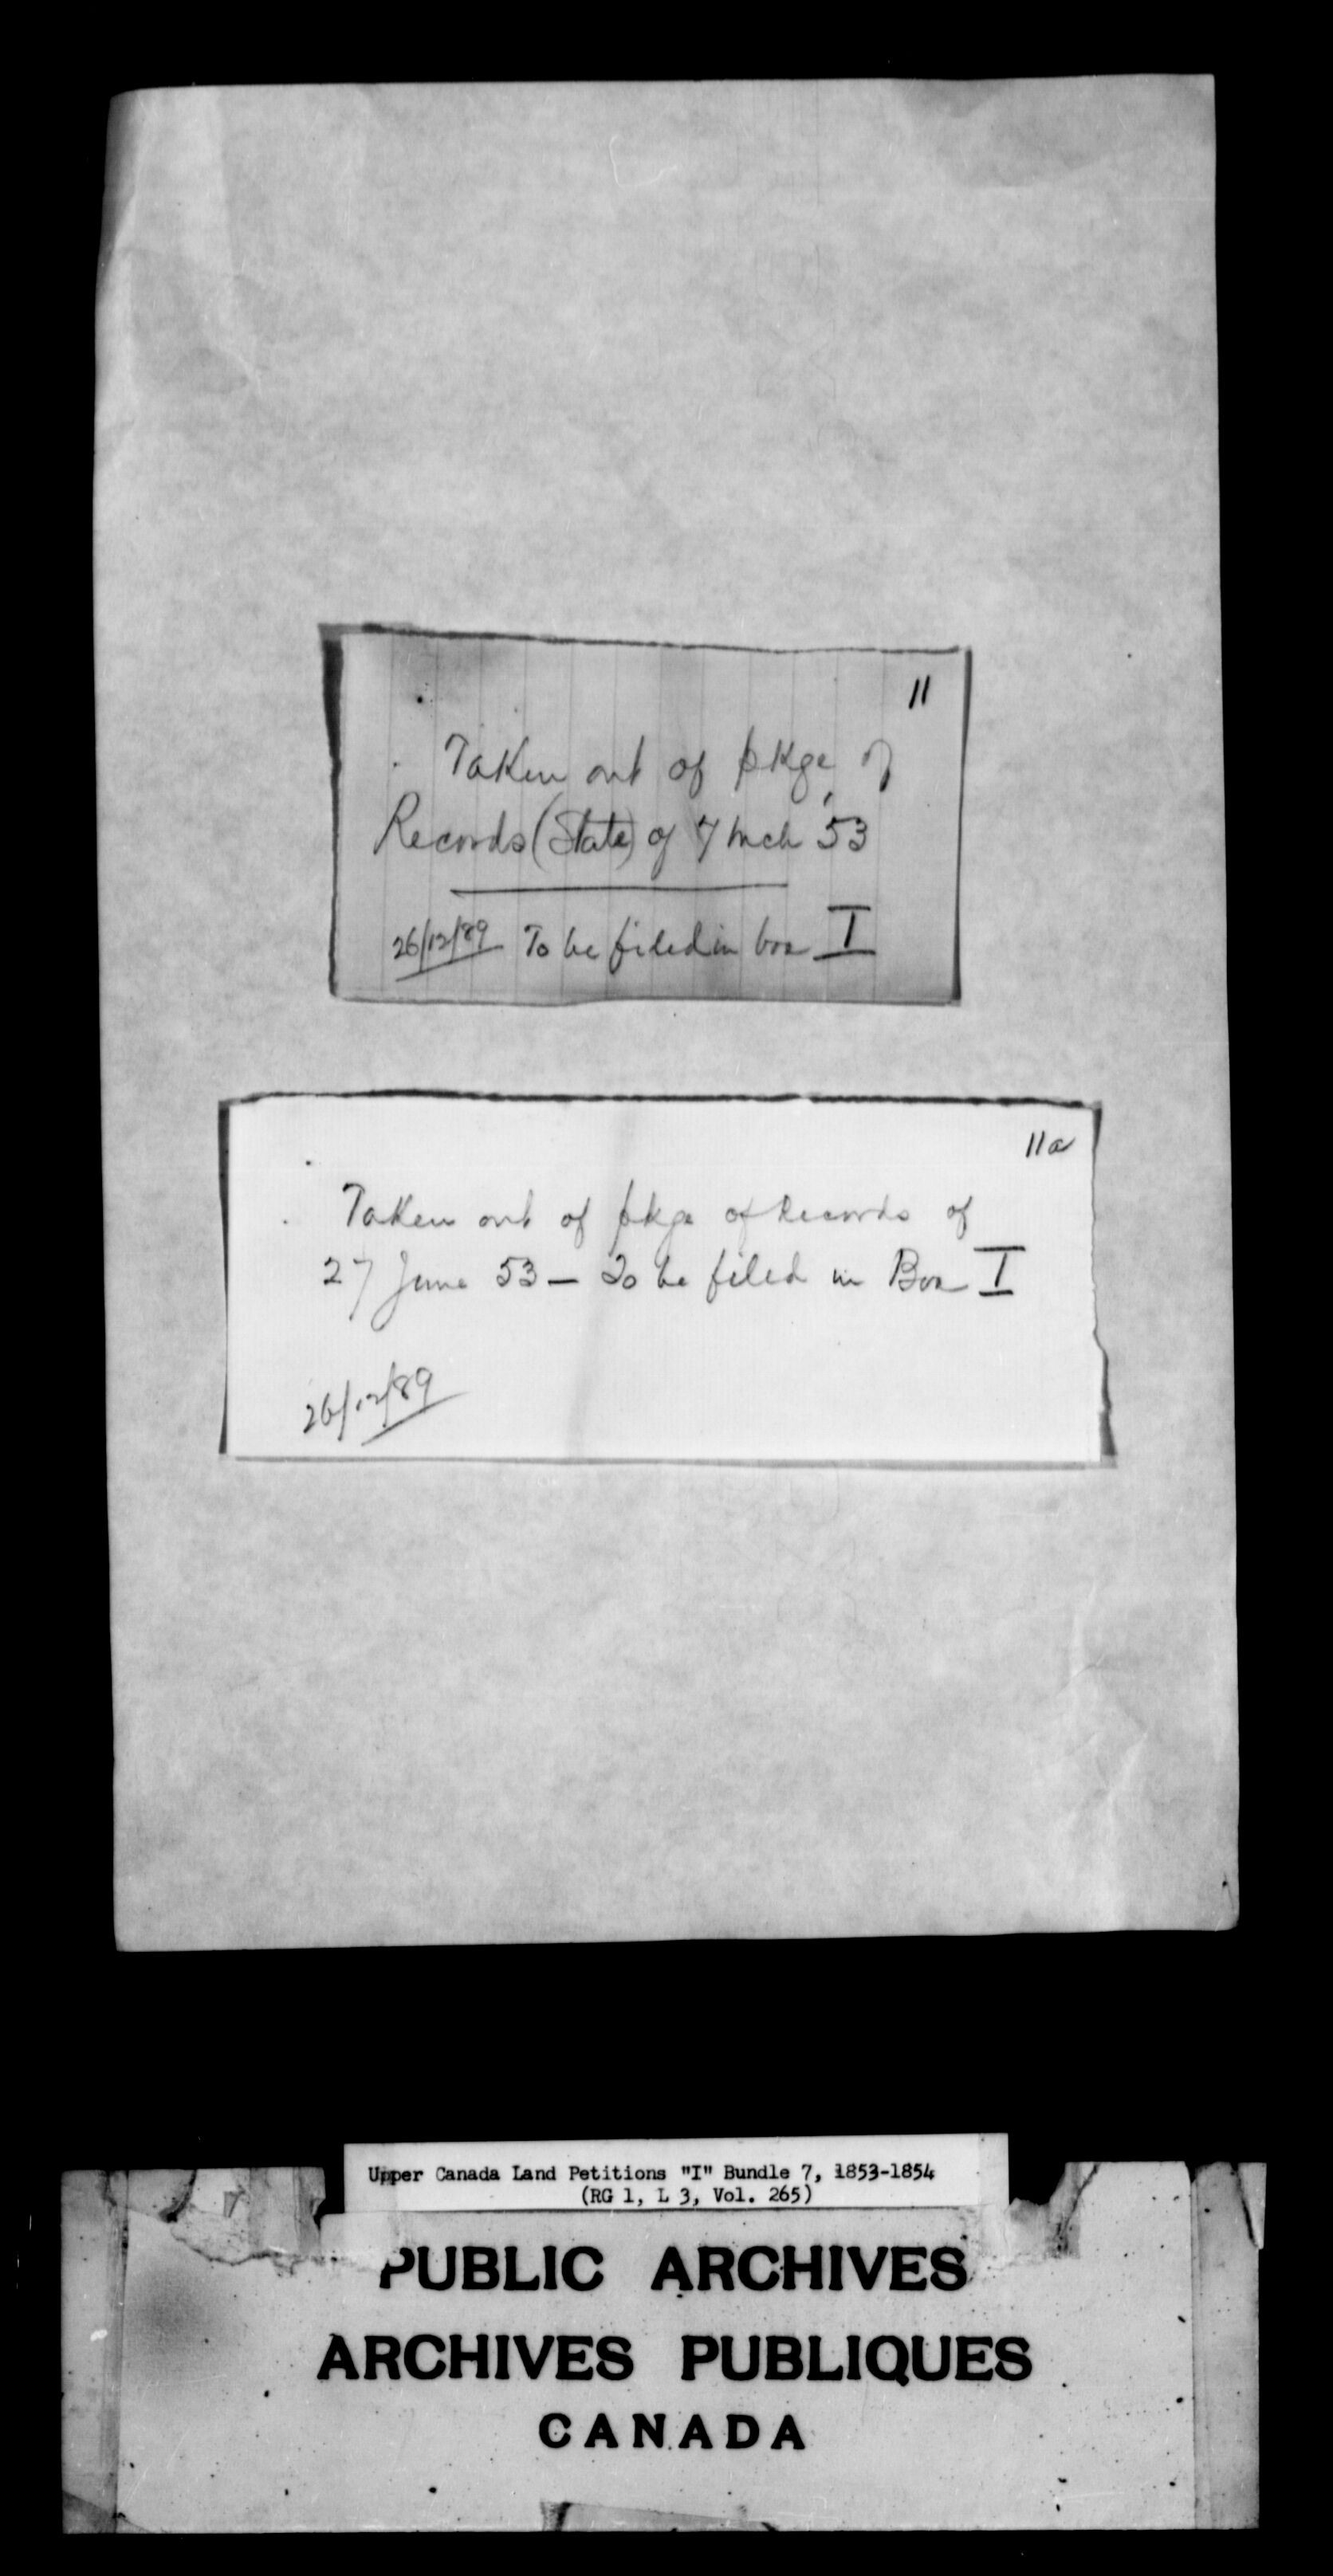 11
Taken out of pkge of
Records (State) of 7 Mch '53
26/12/89 To be filed in box I
11a
Taken out of pkge of Records of
27 June 53 — To be filed in Box I
26/12/89
Upper Canada Land Petitions "I" Bundle 7, 1853-1854
(RG 1, L 3, Vol. 265)
PUBLIC ARCHIVES
ARCHIVES PUBLIQUES
CANADA